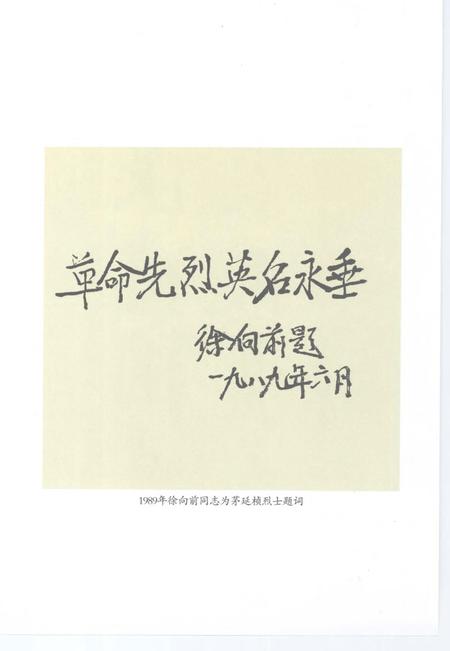 革命先烈英名永垂
徐向前题
一九八九年六月
1989年徐向前同志为茅延桢烈士题词